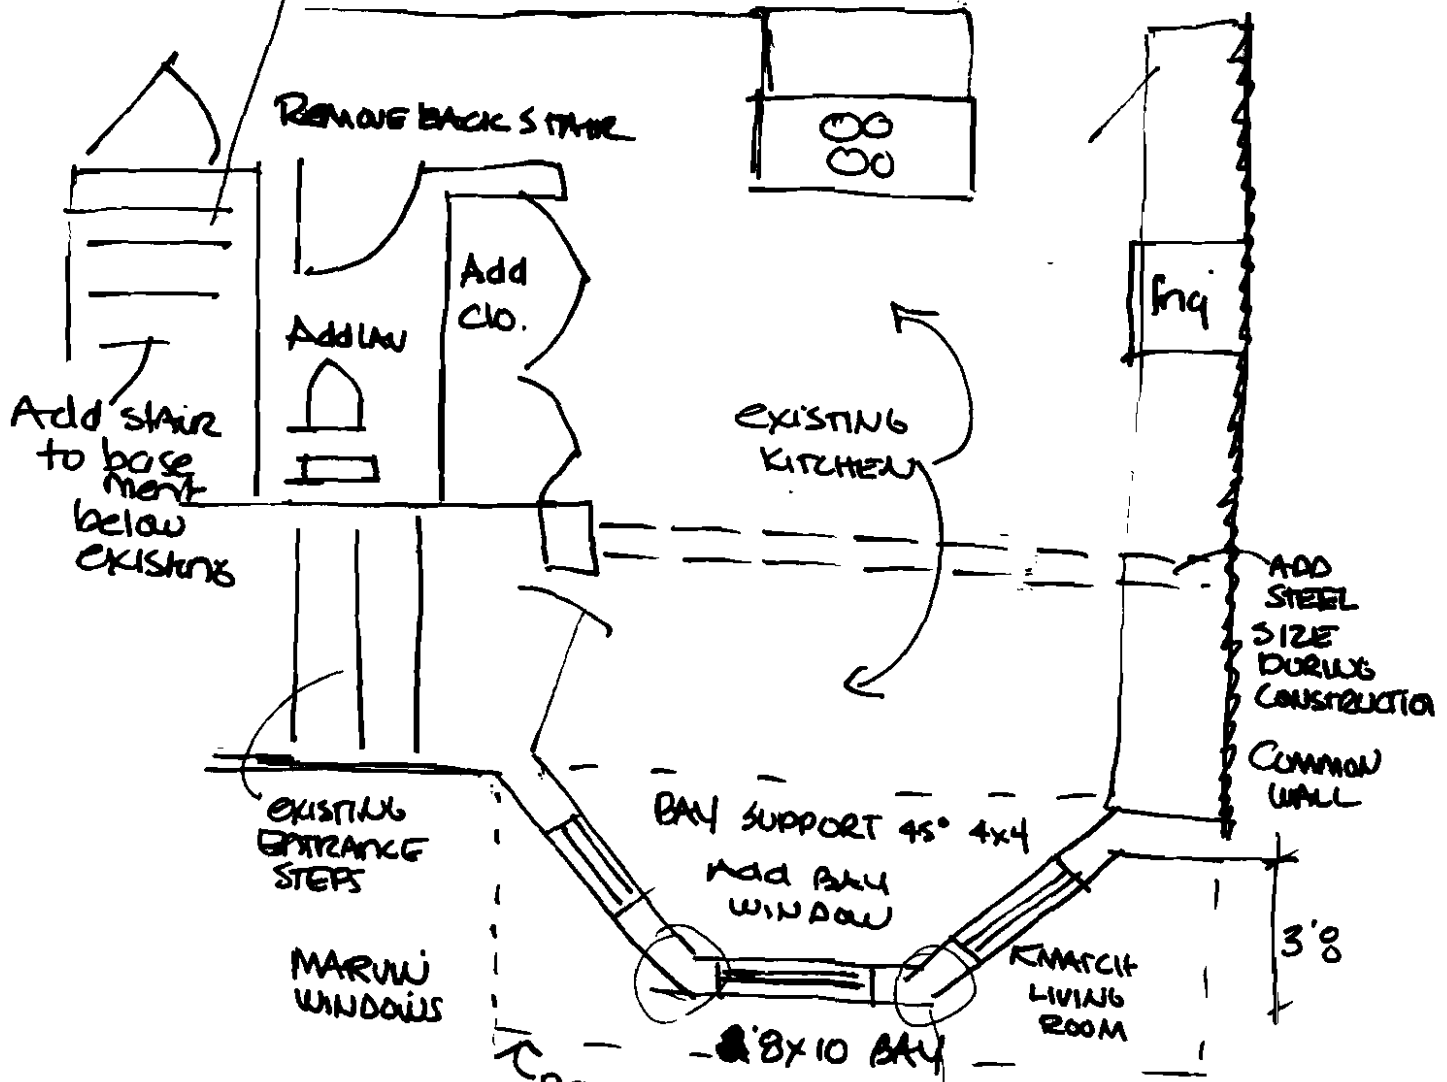 REMOVE BACK STAIR
Add
Clo.
Add LAV
frig
Add stair
to base
ment
below
existing
EXISTING
KITCHEN
ADD
STEEL
SIZE
DURING
CONSTRUCTION
COMMON
WALL
EXISTING
ENTRANCE
STEPS
BAY SUPPORT 45° 4x4
Add BAY
WINDOW
MARVIN
WINDOWS
MATCH
LIVING
ROOM
3'8
8x10 BAY